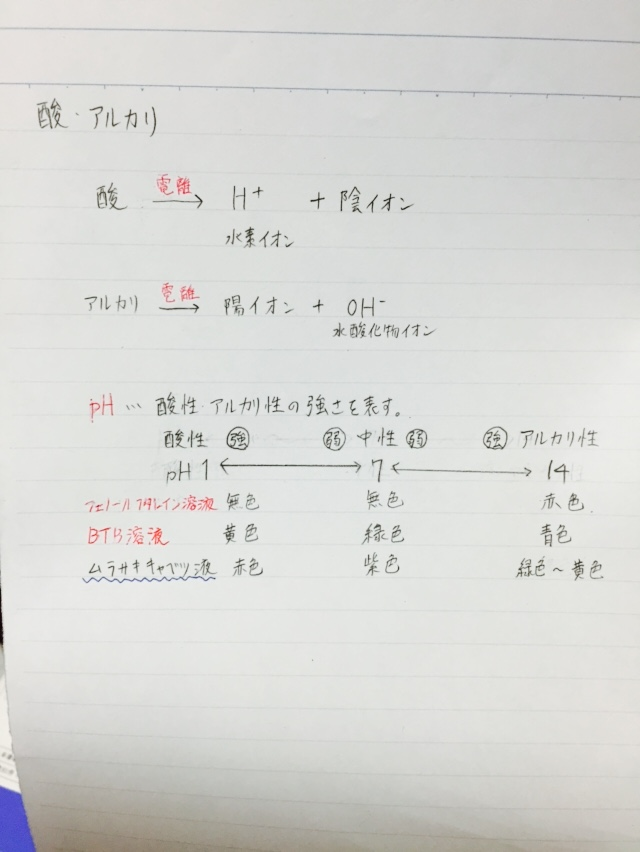 酸・アルカリ
電離
酸 → H⁺ + 陰イオン
水素イオン
電離
アルカリ → 陽イオン + OH⁻
水酸化物イオン
pH … 酸性・アルカリ性の強さを表す。
酸性 強 弱 中性 弱 強 アルカリ性
pH 1 ←→ 7 ←→ 14
フェノールフタレイン溶液 無色 無色 赤色
BTB溶液 黄色 緑色 青色
ムラサキキャベツ液 赤色 紫色 緑色〜黄色